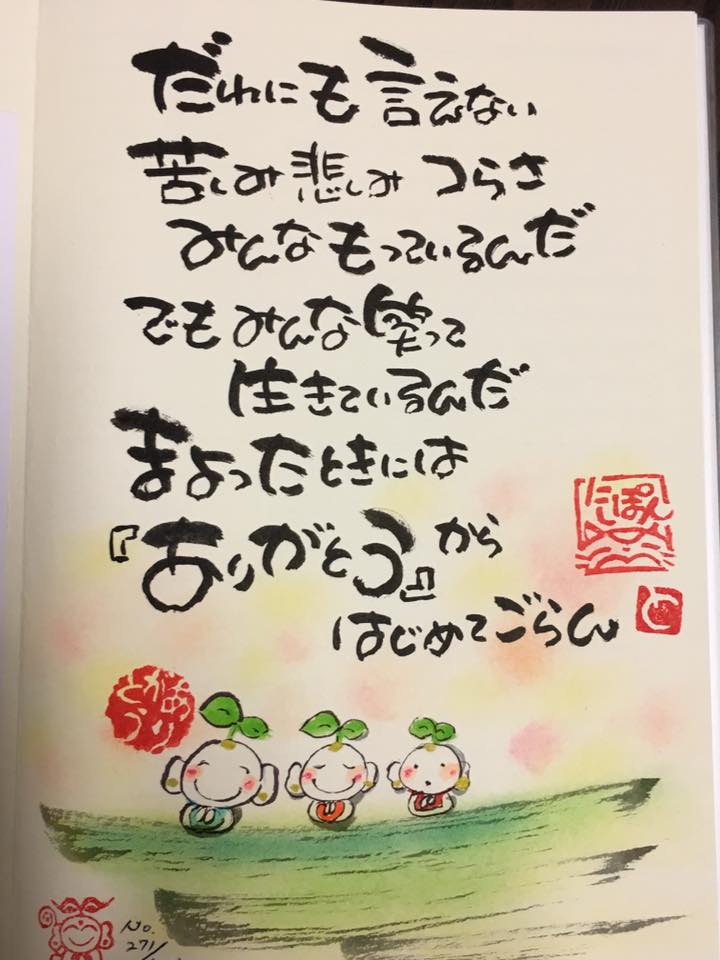 だれにも言えない
苦しみ悲しみ つらさ
みんなもっているんだ
でもみんな笑って
生きているんだ
まよったときには
『ありがとう』から
はじめてごらん
だしぽん
と
No.
271/